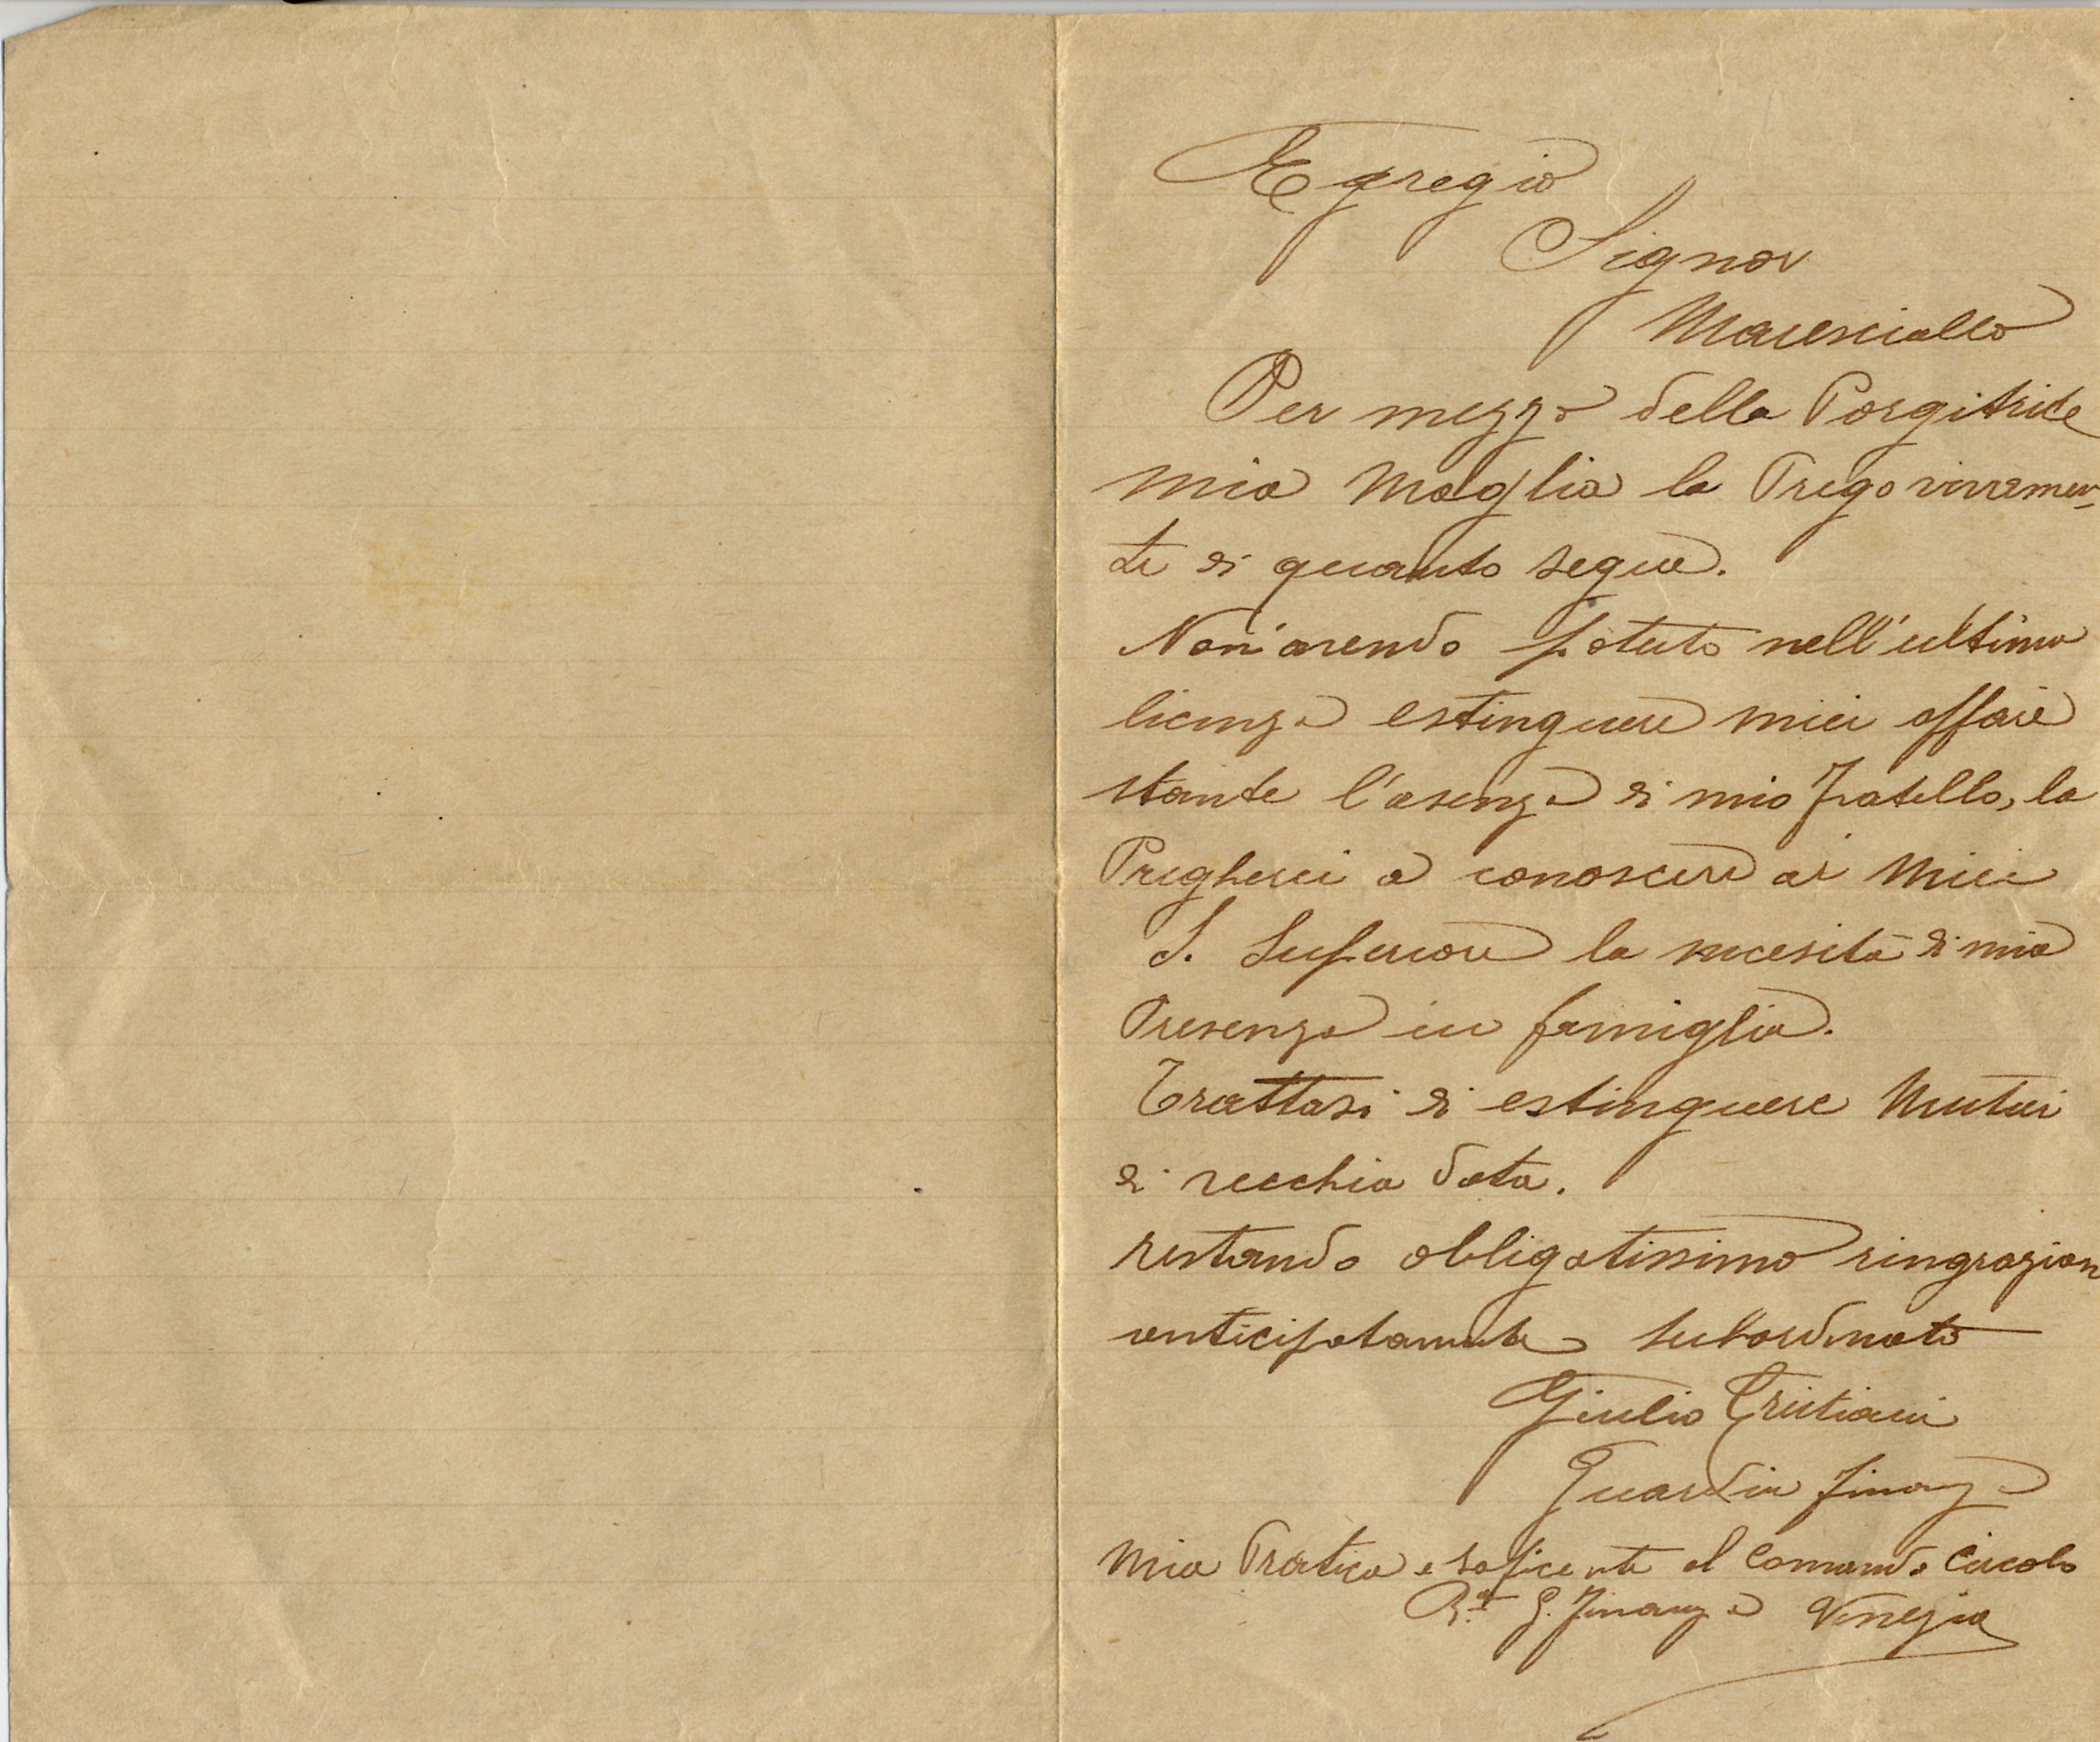 Egregio
Signor
Maresciallo
Per mezzo della Porgitrice
mia Moglia la Prego vivamen-
te di quanto segue.
Non avendo potuto nell'ultima
licenza estinguere miei affari
stante l'asenza di mio Fratello, la
Pregherei a conoscere ai Miei
S. Superiori la necesità di mia
Presenza in famiglia.
Trattasi di estinguere Mutui
di vecchia data.
restando obligatissimo ringrazian
anticipatamente subordinato
Giulio Cristiani
Guardia Finanza
Mia Pratica e saficente al Comando Circolo
R.a G. Finanza Venezia